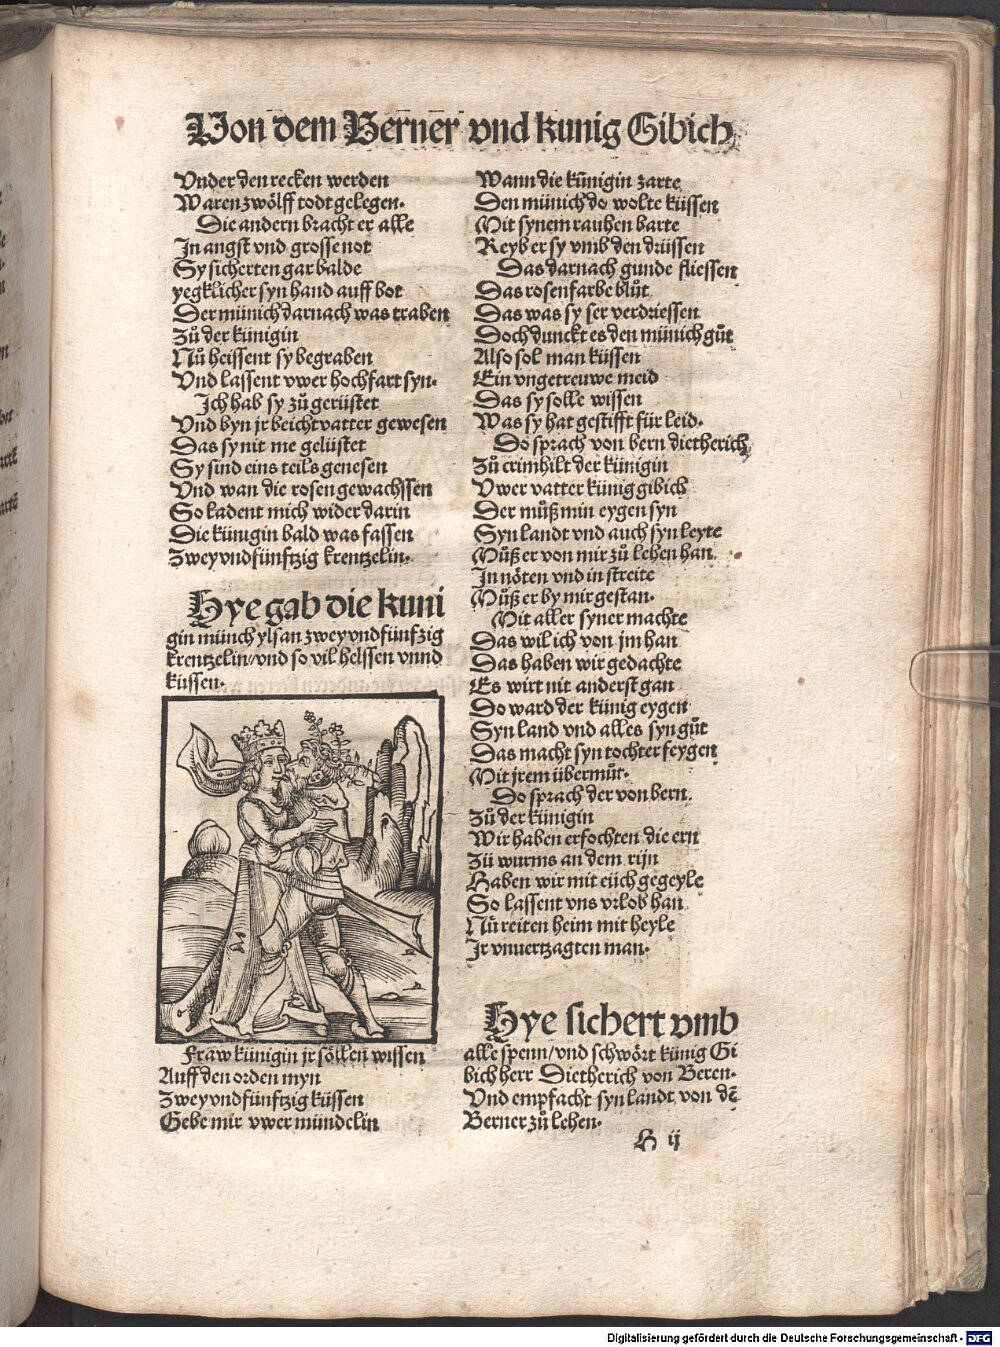 Von dem Berner vnd kunig Gibich
Vnder den recken werden
Waren zwölff todt gelegen.
Die andern bracht er alle
In angst vnd grosse not
Sy sicherten gar balde
yegklicher syn hand auff bot
Der münich darnach was traben
Zů der künigin
Nů heissent sy begraben
Vnd lassent vwer hochfart syn.
Ich hab sy zů gerüstet
Vnd byn jr beichtvatter gewesen
Das sy nit me gelüstet
Sy sind eins teils genesen
Vnd wan die rosen gewachssen
So ladent mich wider darin
Die künigin bald was fassen
Zwey vnd fünftzig krentzelin.
Hye gab die kuni
gin münch ylsan zwey vnd fünfzig
krentzelin/vnd so vil helssen vnnd
kussen.
Fraw künigin jr söllen wissen
Auff den orden myn
Zwey vnd fünftzig küssen
Gebe mir vwer mündelin
Wann die kůnigin zarte
Den münich do wolte küssen
Mit synem rauhen barte
Reyb er sy vmb den drüssen
Das darnach gunde fliessen
Das rosenfarbe blůt
Das was sy ser verdriessen
Doch dunckt es den münich gůt
Also sol man küssen
Ein vngetreuwe meid
Das sy solle wissen
Was sy hat gestifft für leid.
Do sprach von bern dietherich
Zů crimhilt der künigin
Vwer vatter künig gibich
Der můß min eygen syn
Syn landt vnd auch syn leyte
Můß er von mir zů lehen han
In nöten vnd in streite
Můß er by mir gestan.
Mit aller syner machte
Das wil ich von jm han
Das haben wir gedachte
Es wirt nit anderst gan
Do ward der künig eygen
Syn land vnd alles syn gůt
Das macht syn tochter feygen
Mit jrem übermůt.
Do sprach der von bern
Zů der künigin
Wir haben erfochten die ern
Zů wurms an dem rijn
Haben wir mit eüch gegeyle
So lassent vns vrlob han
Nů reiten heim mit heyle
Jr vnuertzagten man.
Hye sichert vmb
alle spenn/vnd schwört künig Gi
bich herr Dietherich von Beren.
Vnd empfacht syn landt von dē
Berner zů lehen.
H ij
Digitalisierung gefördert durch die Deutsche Forschungsgemeinschaft - DFG